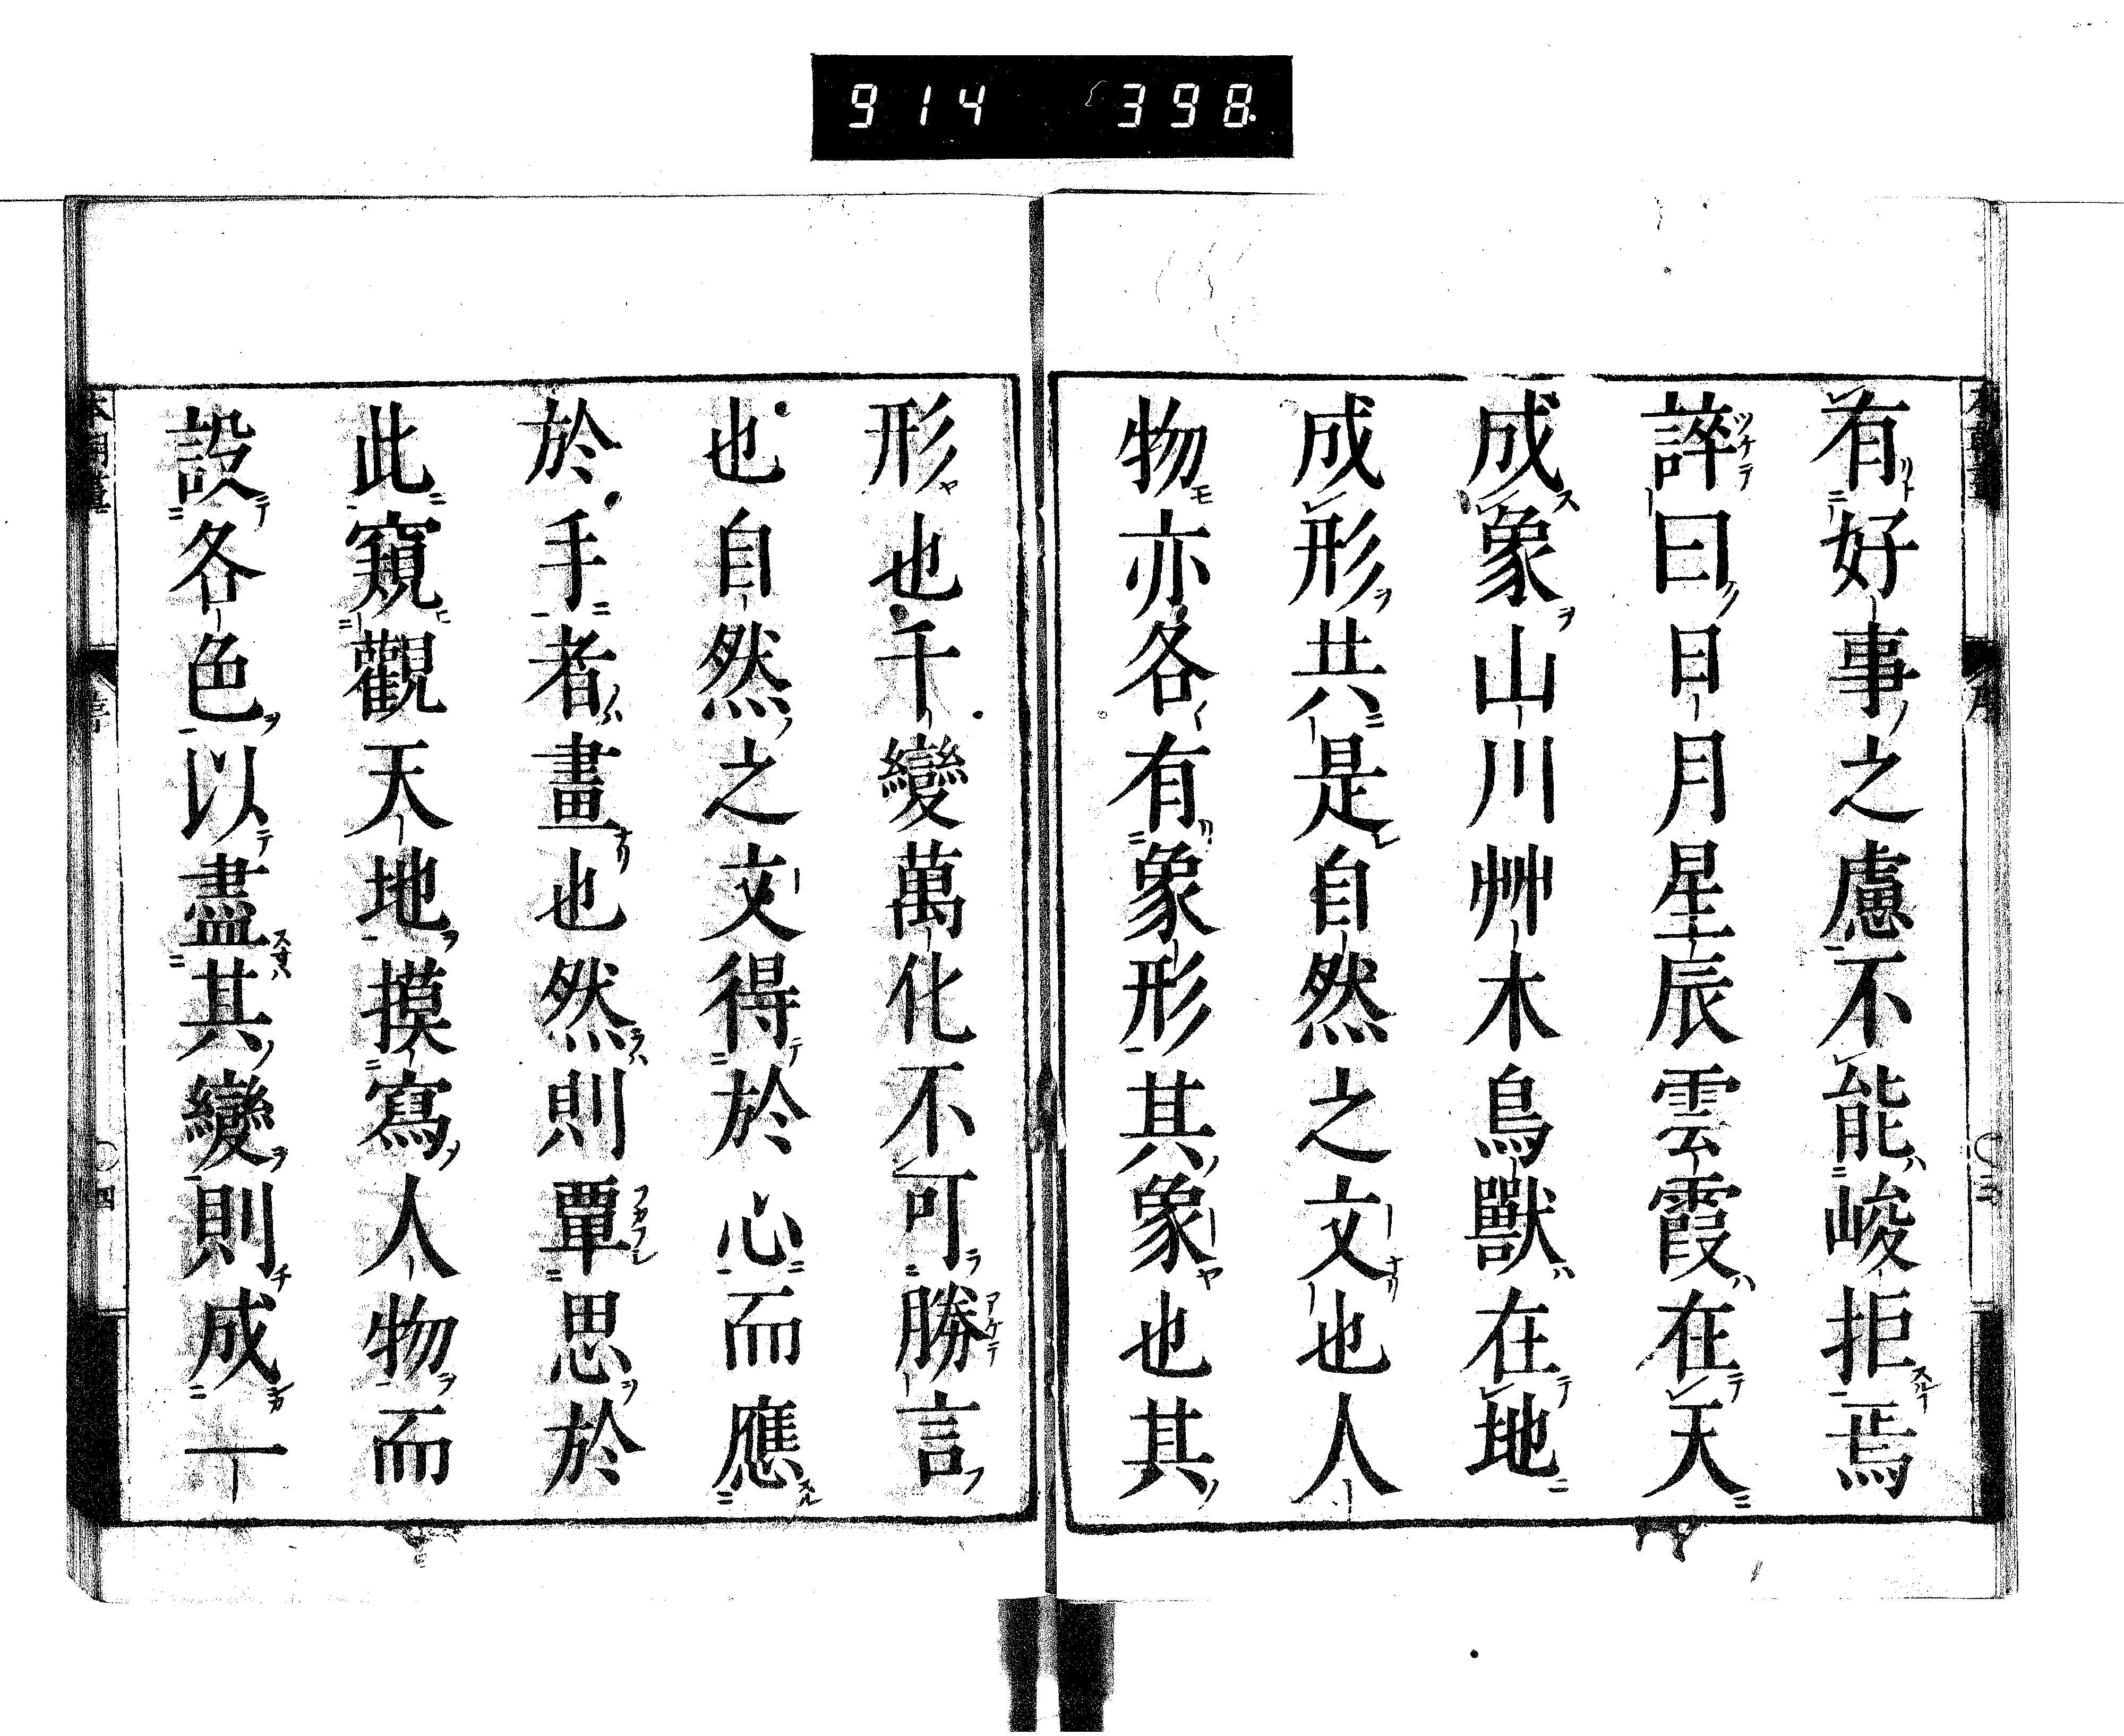 914 398
有好事之慮不能峻拒焉
誶曰日月星辰雲霞在天
成象山川艸木鳥獸在地
成形共是自然之文也人
物亦各有象形其象也其
形也千變萬化不可勝言
也自然之文得於心而應
於手者畫也然則覃思於
此窺觀天地摸寫人物而
設各色以盡其變則成一